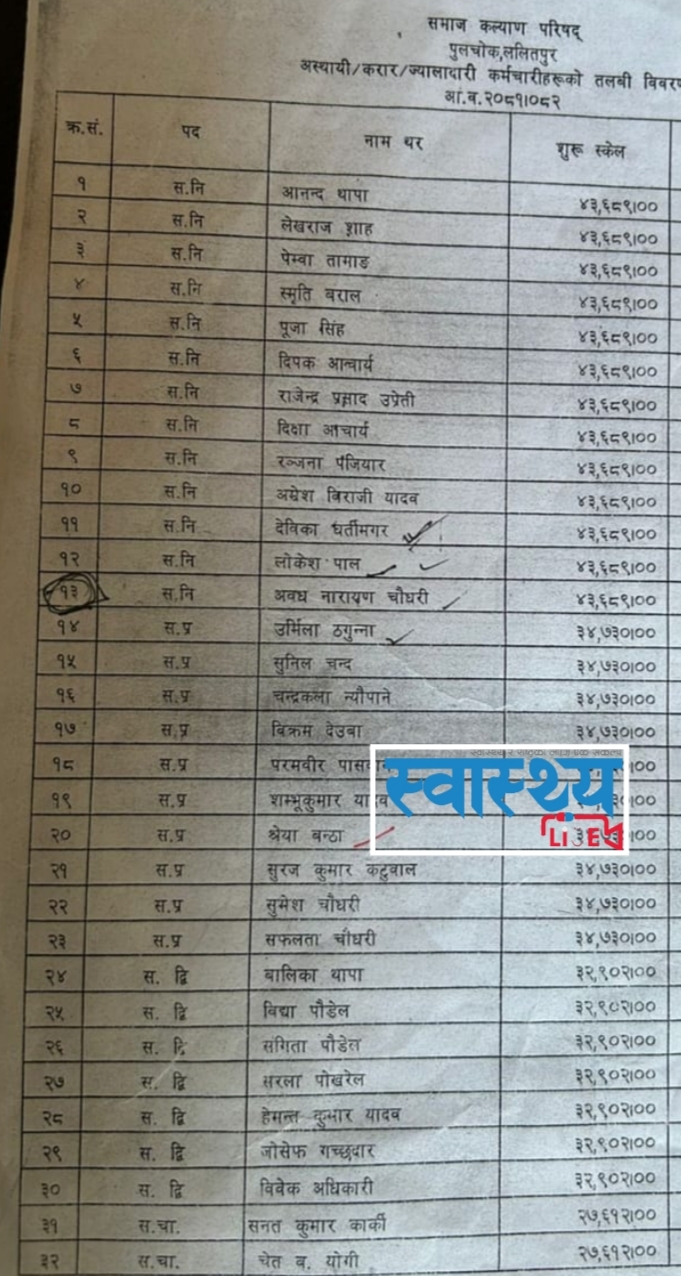 समाज कल्याण परिषद्
पुलचोक,ललितपुर
अस्थायी/करार/ज्यालादारी कर्मचारीहरूको तलबी
आ.ब.२०८१।०८२
क्र.सं. पद नाम थर शुरू स्केल
१ स.नि आनन्द थापा ४३,६८९।००
२ स.नि लेखराज शाह ४३,६८९।००
३ स.नि पेम्बा तामाङ ४३,६८९।००
४ स.नि स्मृति बराल ४३,६८९।००
५ स.नि पूजा सिंह ४३,६८९।००
६ स.नि दिपक आचार्य ४३,६८९।००
७ स.नि राजेन्द्र प्रसाद उप्रेती ४३,६८९।००
८ स.नि दिक्षा आचार्य ४३,६८९।००
९ स.नि रञ्जना पंजियार ४३,६८९।००
१० स.नि अम्रेश बिराजी यादव ४३,६८९।००
११ स.नि देविका घर्तीमगर ४३,६८९।००
१२ स.नि लोकेश पाल ४३,६८९।००
१३ स.नि अवध नारायण चौधरी ४३,६८९।००
१४ स.प्र उर्मिला ठगुन्ना ३४,७३०।००
१५ स.प्र सुनिल चन्द ३४,७३०।००
१६ स.प्र चन्द्रकला न्यौपाने ३४,७३०।००
१७ स.प्र बिक्रम देउबा ३४,७३०।००
१८ स.प्र परमवीर
स्वास्थ्य
१९ स.प्र शम्भूकुमार
२० स.प्र श्रेया बन्ठा
LIVE
२१ स.प्र सुरज कुमार कटुवाल ३४,७३०।००
२२ स.प्र सुमेश चौधरी ३४,७३०।००
२३ स.प्र सफलता चौधरी ३४,७३०।००
२४ स. द्वि बालिका थापा ३२,९०२।००
२५ स. द्वि विद्या पौडेल ३२,९०२।००
२६ स. द्वि संगिता पौडेल ३२,९०२।००
२७ स. द्वि सरला पोखरेल ३२,९०२।००
२८ स. द्वि हेमन्त कुमार यादव ३२,९०२।००
२९ स. द्वि जोसेफ गच्छदार ३२,९०२।००
३० स. द्वि विवेक अधिकारी ३२,९०२।००
३१ स.चा. सनत कुमार कार्की २७,६१२।००
३२ स.चा. चेत ब. योगी २७,६१२।००